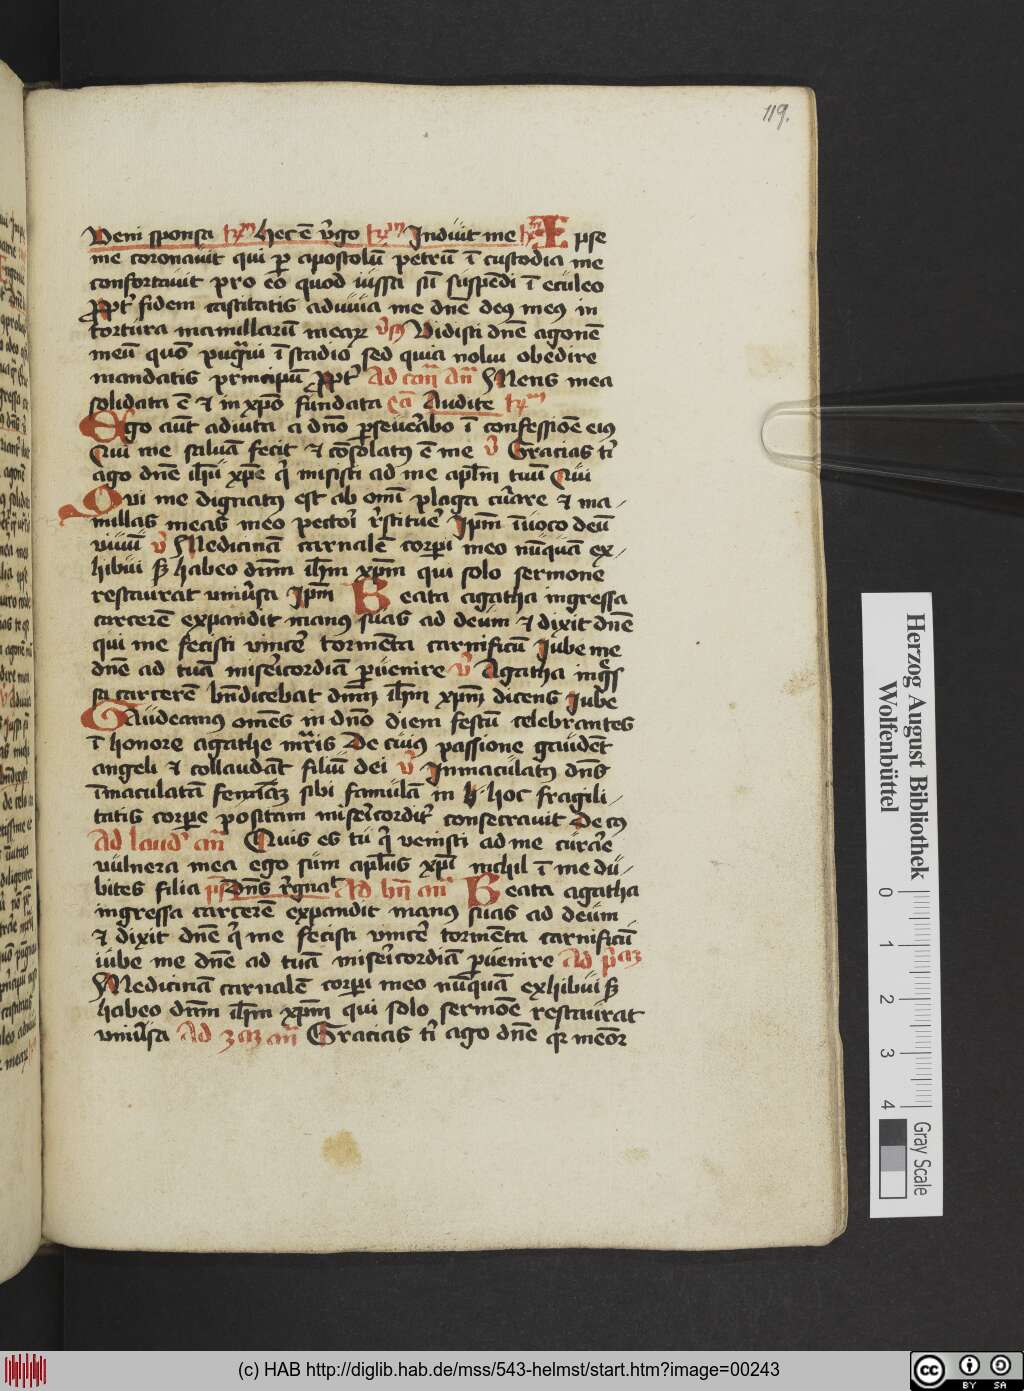 119.
Veni sponsa hec ē v̓go Induit me Ipse
me coronauit qui p̲ apostolū petrū ī custodia me
confortauit pro eo quod iussa sū suspēdi ī eculeo
ꝓpt̓ fidem castitatis adiuua me dn̄e deꝯ meꝯ in
tortura mamillarū meaꝝ v̓sꝯ Vidisti dn̄e agonē
meū quō pugᵃui ī stadio sed quia nolui obedire
mandatis principū ꝓpt̓ Ad can̄ an̄ Mens mea
solidata ē ⁊ in xp̄o fundata Audite
Ego aūt adiuta a dn̄o ꝑseuerabo ī confessiōe eiꝯ
Qui me saluā fecit ⁊ cōsolatꝯ ē me v̓ Gracias ti
ago dn̄e ih̄u xp̄e qͥ misisti ad me apl̄m tuū Qui
Qui me dignatꝯ est ab om̄i plaga curare ⁊ ma-
millas meas meo pectori r̓stituē Ip̄m īuoco deū
viuū v̓ Medicinā carnalē corpi meo nūquā ex-
hibui ſꝫ habeo dn̄m ih̄m xp̄m qui solo sermone
restaurat uniu̓sa Ip̄m Beata agatha ingressa
carcerē expandit manꝯ suas ad deum ⁊ dixit dn̄e
qui me fecisti vincē tormēta carnificū Iube me
dn̄e ad tuā misericordiā ꝑuenire v̓ Agatha ingᵉs
sa carcerē bn̄dicebat dn̄m ih̄m xp̄m dicens Iube
Gaudeamꝯ omēs in dn̄o diem festū celebrantes
ī honore agathe mr̄is De cuiꝯ passione gaudēt
angeli ⁊ collaudāt filiū dei v̓ Inmaculatꝯ dn̄s
īmaculatā femīaꝫ sibi famulā in h· hoc fragili-
tatis corpe positam misericordit̓ consecrauit De cꝯ
Ad laud̓ an̄ Quis es tu qͥ venisti ad me curare
vulnera mea ego sum apl̄us xp̄i nichil ī me du-
bites filia ps̄ Dn̄s r̓gnaᵗ Ad bn̄ an̄ Beata agatha
ingressa carcerē expandit manꝯ suas ad deum
⁊ dixit dn̄e qͥ me fecisti vincē tormēta carnificū
iube me dn̄e ad tuā misericordiā ꝑuenire Ad p̓aꝫ
Medicinā carnalē corpi meo nūquā exhibui ſꝫ
habeo dn̄m ih̄m xp̄m qui solo sermōe restaurat
uniu̓sa Ad 3aꝫ an̄ Gracias ti ago dn̄e qꝛ memor
Herzog August Bibliothek
Wolfenbüttel
0 1 2 3 4
Gray Scale
(c) HAB http://diglib.hab.de/mss/543-helmst/start.htm?image=00243
cc BY SA